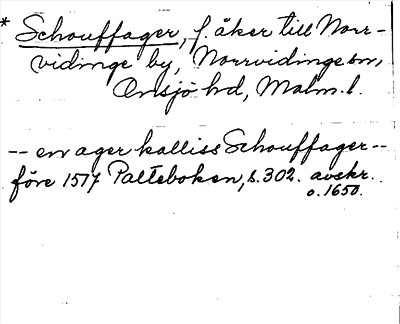 * Schouffager, f. åker till Norr-
vidinge by, Norrvidinge sn,
Onsjö hd, Malm. l.
-- en ager kalliss Schouffager --
före 1517 Palteboken, s. 302. avskr.
o. 1650.